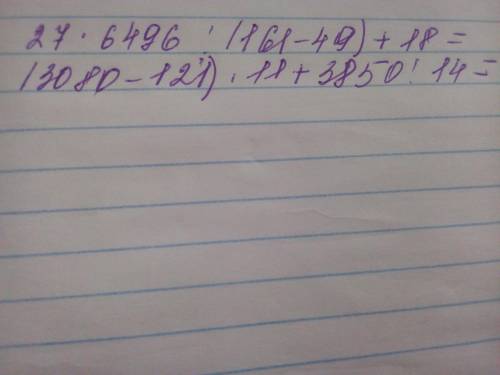 27 · 6496 : (161-49) + 18 =
(3080-121) · 11 + 3850 : 14 =